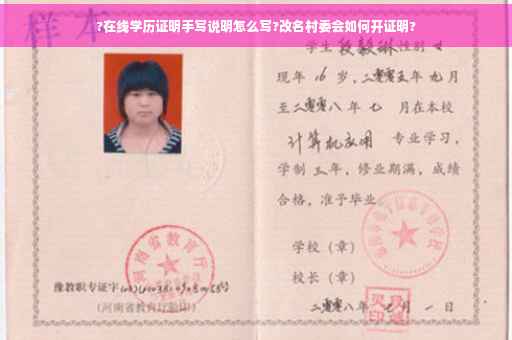 ?在线学历证明手写说明怎么写?改名村委会如何开证明?
样本
学生段毅琳性别女
现年16岁,二零零五年九月
至二零零八年七月在本校
计算机应用 专业学习,
学制三年,修业期满,成绩
合格,准予毕业
学校(章)
校长(章)
二零零八年 月一日
河南省教育厅
豫教职专证字
(河南省教育厅验印)